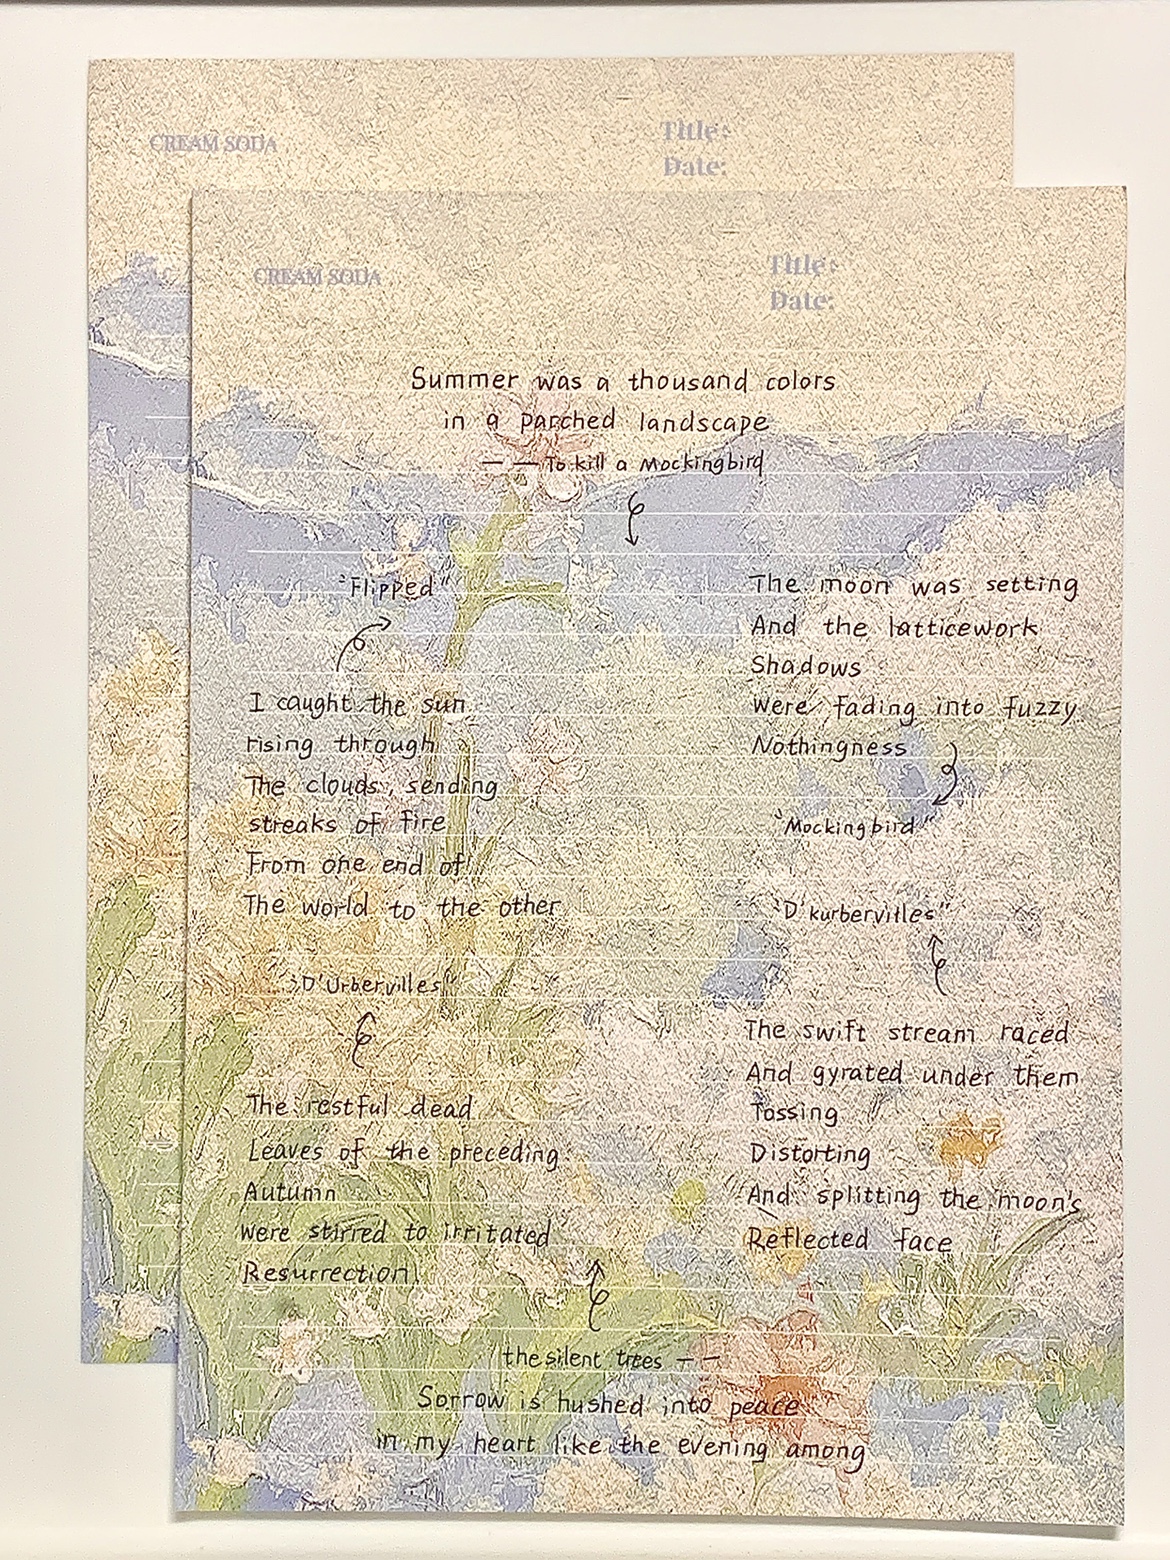 CREAM SODA
Title:
Date:
CREAM SODA
Title:
Date:
Summer was a thousand colors
in a parched landscape
— — To kill a Mockingbird
"Flipped"
I caught the sun
rising through
The clouds, sending
streaks of fire
From one end of
The world to the other
"D'Urbervilles"
The restful dead
Leaves of the preceding
Autumn
were stirred to irritated
Resurrection
The moon was setting
And the latticework
Shadows
Were fading into fuzzy
Nothingness
"Mockingbird"
"D'kurbervilles"
The swift stream raced
And gyrated under them
Tossing
Distorting
And splitting the moon's
Reflected face
the silent trees — —
Sorrow is hushed into peace
in my heart like the evening among